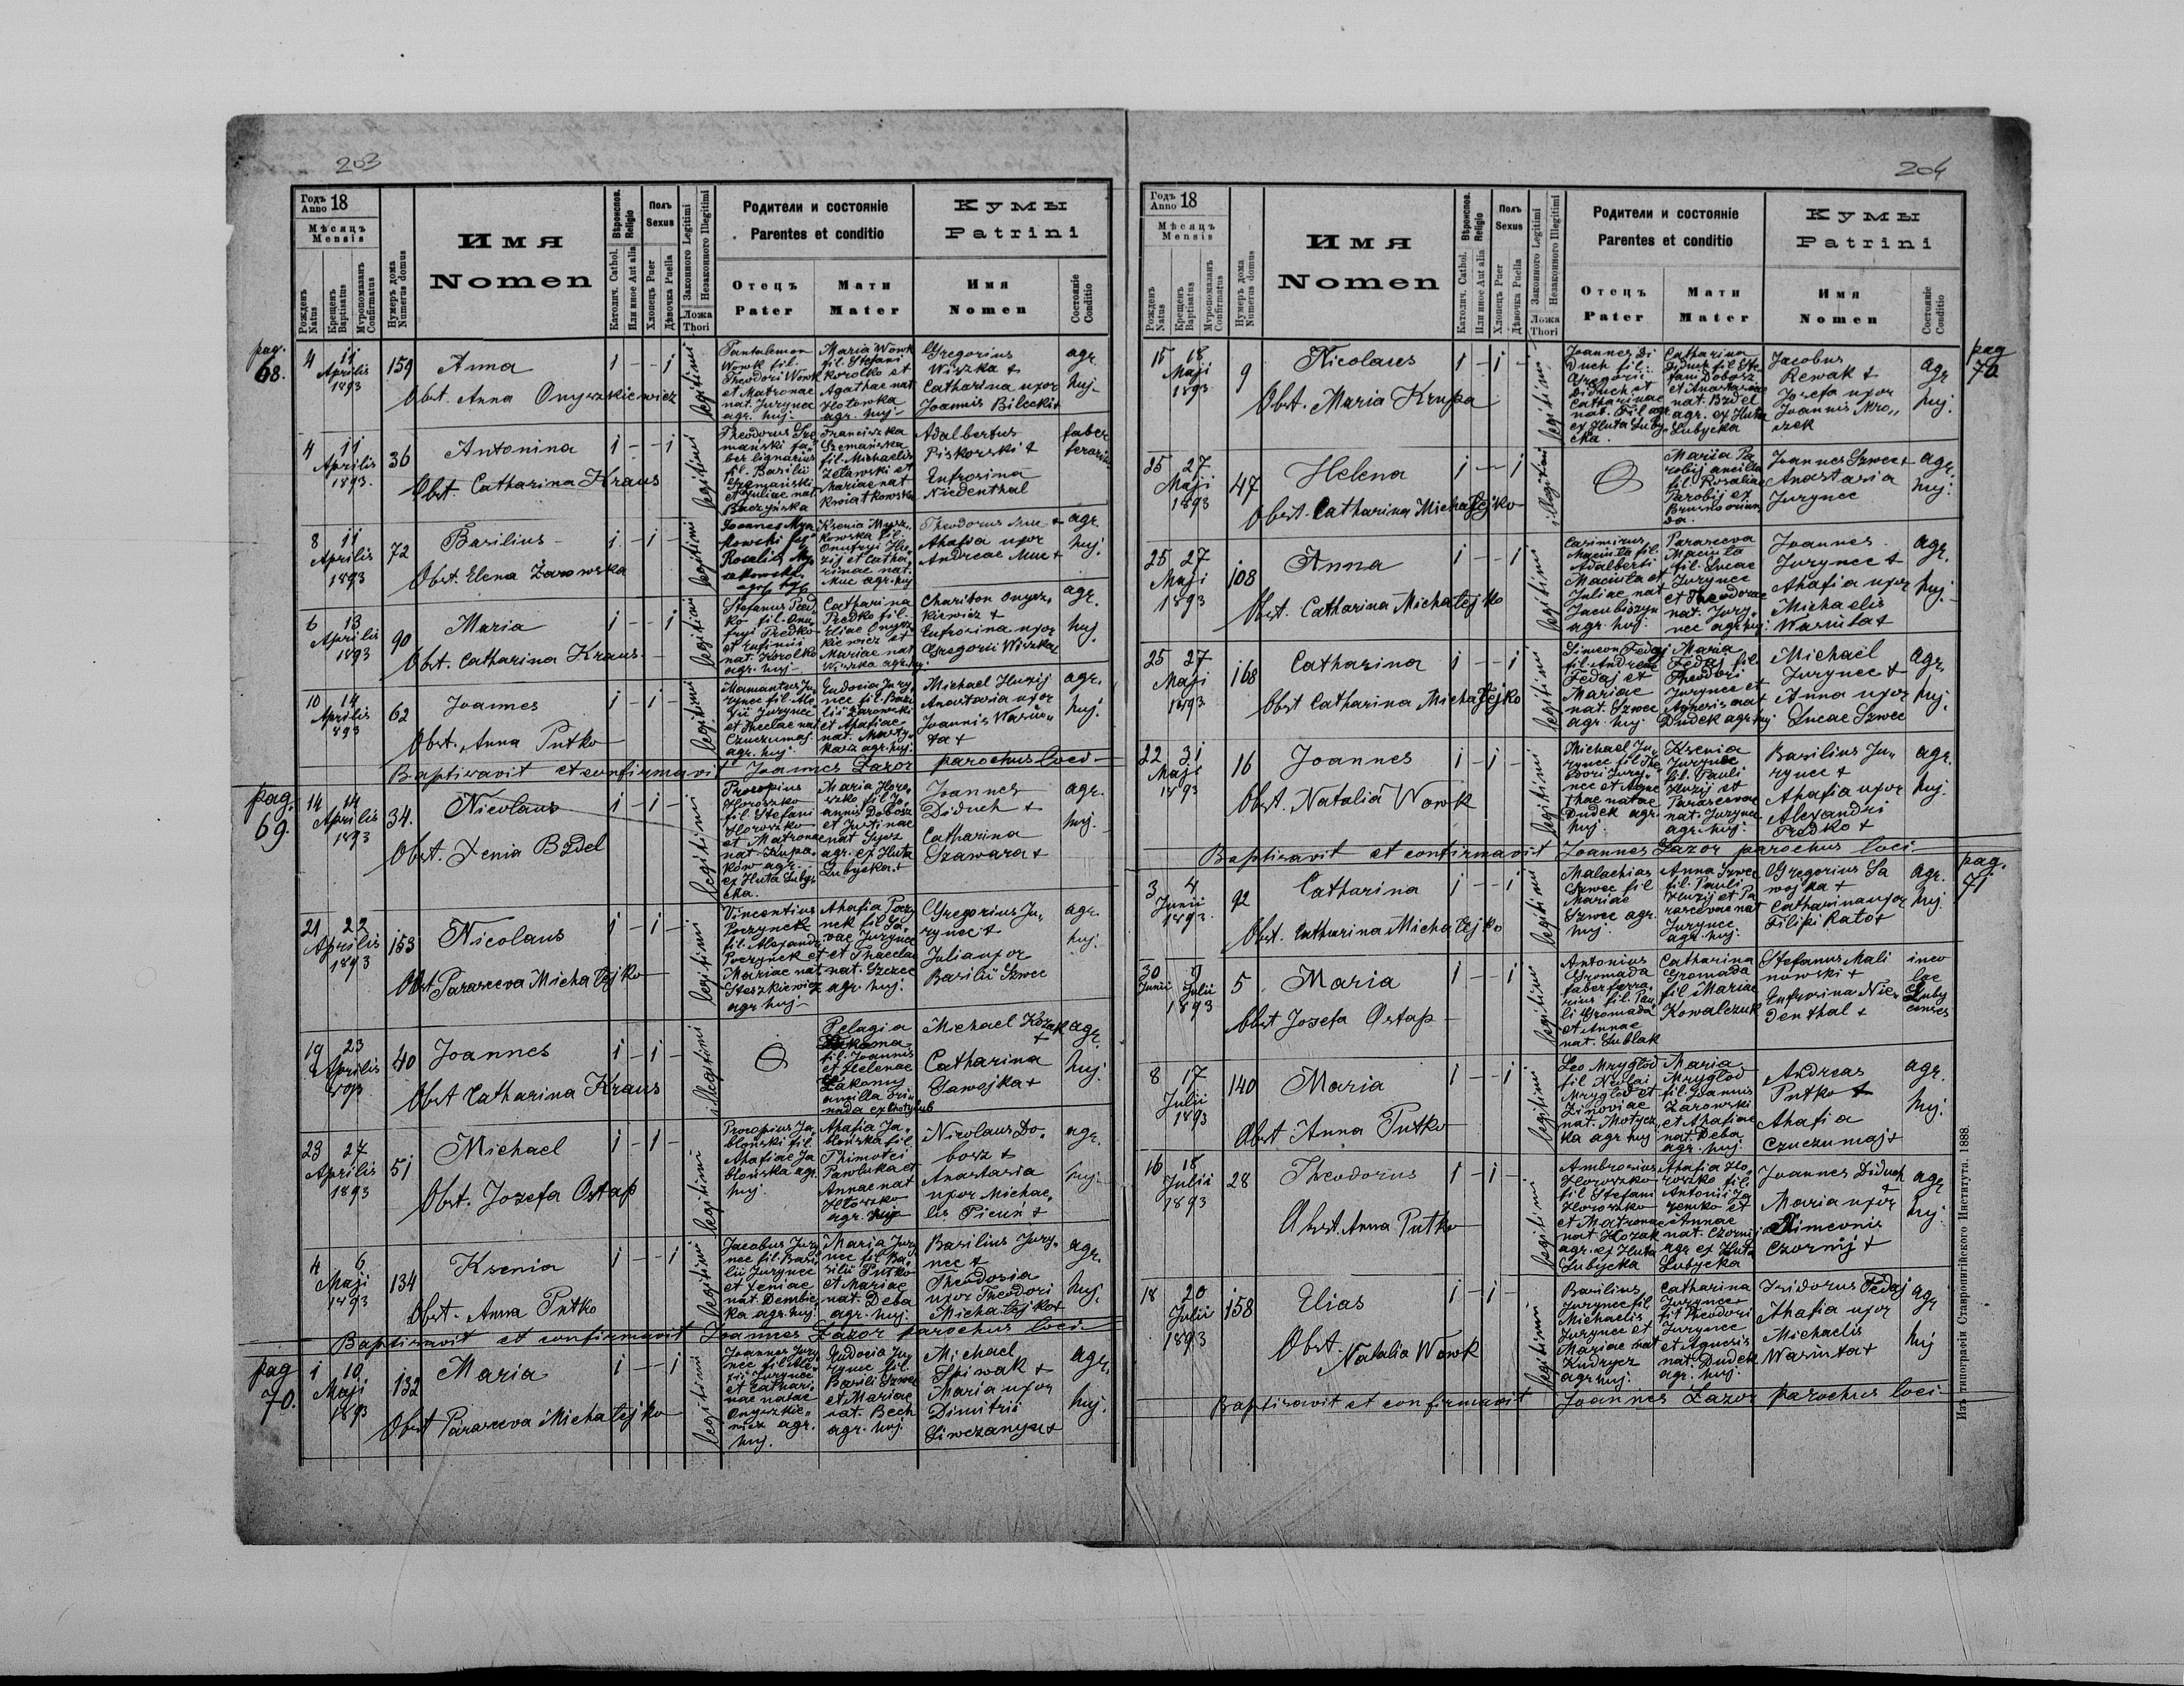 203
Годъ Anno 18
Мѣсяцъ Mensis
Рожденъ Natus
Крещенъ Baptisatus
Мѵропомазанъ Confirmatus
Нумеръ дома Numerus domus
Имя
Nomen
Вѣроисповѣд. Religio
Католич. Cathol.
Или иное Aut alia
Полъ Sexus
Хлопецъ Puer
Дѣвочка Puella
Законного Legitimi
Незаконного Illegitimi
Ложа Thori
Родители и состояніе
Parentes et conditio
Отецъ Pater
Мати Mater
Кумы
Patrini
Имя Nomen
Состояніе Conditio
pag. 68.
4 11 Aprilis 1893 159 Anna 1 - - 1 legitimi
Obst. Anna Onyszkiewicz
Pantalemon Wowk fil. Theodori Wowk et Matronae nat. Jurynec agr. huj.
Maria Wowk fil. Stefani Korolko et Agathae nat Hotowka agr. huj.
Gregorius Wiszka + Catharina uxor Joannis Bilecki +
agr. huj.
4 11 Aprilis 1893. 36 Antonina 1 - - 1 legitimi
Obst. Catharina Kraus
Theodorus Szemański faber lignarius fil. Basilii Szemański et Juliae nat. Baczyńska
Franciszka Szemańska fil. Michaelis Zelawski et Mariae nat Kwiatkowska
Adalbertus Piskorski + Eufrosina Niedenthal
faber ferarius
8 11 Aprilis 1893 72 Basilius 1 - 1 - legitimi
Obst. Elena Żarowska
Ksenia Mysz„kowska fil. Onufryi
nat. Muc agr. huj
Theodorus Muc + Ahafia uxor Andreae Muc +
agr. huj.
6 13 Aprilis 1893 90 Maria 1 - - 1 legitimi
Obst. Catharina Kraus
Stefanus Predko fil. Onufryi Predko et Eufimii nat. Korolko agr. huj
Catharina Predko fil. Eliae Onyszkiewicz et Mariae nat Wiszka agr. huj.
Chariton Onyszkiewicz + Eufrosina uxor Gregorii Wiszka
agr. huj
10 14 Aprilis 893 62 Joannes 1 - 1 - legitimi
Obst. Anna Putko
Mamantus Jurynec fil. Alexii Jurynec et Theclae nat Czuczumaj. agr. huj.
Eudocia Jurynec fil. Basilii Żarowski et Ahafiae nat. Martykasz agr. huj.
Michael Huzij Anastasia uxor Joannis Wasiuta +
agr. huj.
Baptisavit et confirmavit Joannes Lazor parochus loci
pag. 69.
14 14 Aprilis 1893 34. Nicolaus 1 - 1 - legitimi
Obst. Xenia Bzdel
Procopius Horoszko fil. Stefani Horoszko et Matronae nat. agr. ex Huta Lubycka.
Maria Horoszko fil. Joannis Dobosz et Justinae nat agr. ex Huta Lubycka +
Joannes Diduch + Catharina Szawara +
agr. huj.
21 22 Aprilis 1893 153 Nicolaus 1 - 1 - legitimi
Obst Parasceva Michalejko
Vincentius Poczynek fil. Alexandri Poczynek et Mariae nat. Steszkiewicz agr. huj
Ahafia Poczynek fil. Savae Jurynec et Theclae nat. Szczec agr. huj.
Gregorius Jurynec + Julia uxor Basilii Szwec
agr. huj.
19 23 Aprilis 893 40 Joannes 1 - 1 - illegitimi
Obst Catharina Kraus
Pelagia fil. Joannis et Helenae Łakomy ancilla oriunda ex Chotylub
Michael Kozak + Catharina Sawojka +
agr. huj
23 27 Aprilis 1893 51 Michael 1 - 1 - legitimi
Obst. Jozefa Ostap
Procopius Jabloński fil. Ahafiae Jabłońska agr. huj.
Ahafia Jablońska fil Thimotei Pawluka et Annae nat agr. huj
Nicolaus Dobosz + Anastasia uxor Michaelis Picuń +
agr. huj.
4 6 Maji 1893 134 Ksenia 1 - - 1 legitimi
Obst. Anna Putko
Jacobus Jurynec fil. Basilii Jurynec et Xeniae nat. Dembicka agr. huj.
Maria Jurynec fil. Basilii Putko et Mariae nat. Deba agr. huj.
Basilius Jurynec + Theodosia uxor Theodori Michalejko +
agr. huj.
Baptisavit et confirmavit Joannes Lazor parochus loci
pag 70.
1 10 Maji 1893 132 Maria 1 - - 1 legitimi
Obst Parasceva Michalejko
Joannes Jurynec fil. Alexii Jurynec et Catharinae natae Onyszkiewicz agr. huj.
Eudocia Jurynec fil. Basili Szwec et Mariae nat. Bech agr. huj.
Michael Spiwak + Maria uxor Dimitrii Siwczanyn +
agr. huj.
204
Годъ Anno 18
Мѣсяцъ Mensis
Рожденъ Natus
Крещенъ Baptisatus
Мѵропомазанъ Confirmatus
Нумеръ дома Numerus domus
Имя
Nomen
Вѣроисповѣд. Religio
Католич. Cathol.
Или иное Aut alia
Полъ Sexus
Хлопецъ Puer
Дѣвочка Puella
Законного Legitimi
Незаконного Illegitimi
Ложа Thori
Родители и состояніе
Parentes et conditio
Отецъ Pater
Мати Mater
Кумы
Patrini
Имя Nomen
Состояніе Conditio
pag 70
15 18 Maji 1893 9 Nicolaus 1 - 1 - legitimi
Obst. Maria Krupa
Joannes Diduch fil. Gregorii Diduch et Catharinae nat. Fil agr. ex Huta Lubycka.
Catharina Diduch fil Stefani Dobosz et Anastasiae nat. Bzdel agr. ex Huta Lubycka
Jacobus Rewak + Josefa uxor Joannis Mroszek
agr huj.
25 27 Maji 1893 47 Helena 1 - 1 illegitimi
Obst. Catharina Michalejko
Maria Parobij ancilla fil. Rosaliae Parobij ex Brusno oriunda.
Joannes Szwec + Anastasia Jurynec
agr. huj.
25 27 Maji 1893 108 Anna 1 - 1 legitimi
Obst. Catharina Michalejko
Casimirus Maciuła fil. Adalberti Maciuła et Juliae nat Jacubiszyn agr. huj.
Parasceva Maciuła fil. Lucae Jurynec et Theodorae nat. Jurynec agr. huj.
Joannes Jurynec + Ahafia uxor Michaelis Wasiuta +
agr. huj.
25 27 Maji 1893 168 Catharina 1 - - 1 legitimi
Obst Catharina Michalejko
Simeon Fedaj fil. Andreae Fedaj et Mariae nat. Szwec agr. huj.
Maria Fedaj fil. Theodori Jurynec et Agnesis nat Dudek agr. huj
Michael Jurynec + Anna uxor Lucae Szwec
agr. huj.
22 31 Maji 1893 16 Joannes 1 - 1 - legitimi
Obst. Natalia Wowk
Michael Jurynec fil. Theodori Jurynec et Agnethae natae Dudek agr. huj.
Ksenia Jurynec fil. Pauli Huzij et Parascevae nat. Jurynec agr. huj.
Basilius Jurynec + Ahafia uxor Alexandri Predko +
agr. huj.
Baptisavit et confirmavit Joannes Lazor parochus loci
pag. 71
3 4 Junii 1893. 92 Catharina 1 - 1 legitimi
Obst. Catharina Michalejko
Malachias Szwec fil Mariae Szwec agr. huj
Anna Szwec fil. Pauli Huzij et Parascevae nat Jurynec agr. huj.
Gregorius Sawojka + Catharina uxor Filipi Rato +
agr. huj.
30 Junii 9 Julii 1893 5 Maria 1 - 1 legitimi
Obst Josefa Ostap
Antonius Gromada faber ferrarius fil. Pauli Gromada et Annae nat. Sublak
Catharina Gromada fil Mariae Kowalczuk
Stefanus Malinowski + Eufrosina Niedenthal +
incolae Lubycenses
8 17 Julii 1893 140 Maria 1 - - 1 legitimi
Obst Anna Putko
Leo Mryglod fil Nicolai Mryglod et Zinoviae nat. Motyczka agr huj
Maria Mryglod fil. Joannis Żarowski et Ahafiae nat. Deba agr. huj.
Andreas Putko + Ahafia Czuczumaj +
agr. huj.
16 18 Julii 1893 28 Theodorus 1 - 1 - legitimi
Obst. Anna Putko
Ambrosius Horoszko fil Stefani Horoszko et Matronae nat Kozak agr. ex Huta Lubycka
Ahafia Horoszko fil. Antonii et Annae nat. Czornij agr ex Huta Lubycka
Joannes Diduch + Maria uxor Simeonis Czornij +
agr huj
18 20 Julii 1893 158 Elias 1 - 1 - legitimi
Obst. Natalia Wowk
Basilius Jurynec fil Michaelis Jurynec et Mariae nat Kudrycz agr huj.
Catharina Jurynec fil Theodori Jurynec et Agnesis nat. Dudek agr. huj.
Isidorus Fedaj Ahafia uxor Michaelis Wasiuta +
agr huj
Baptisavit et confirmavit Joannes Lazor parochus loci
Изъ типографіи Ставропигійского Института. 1888.